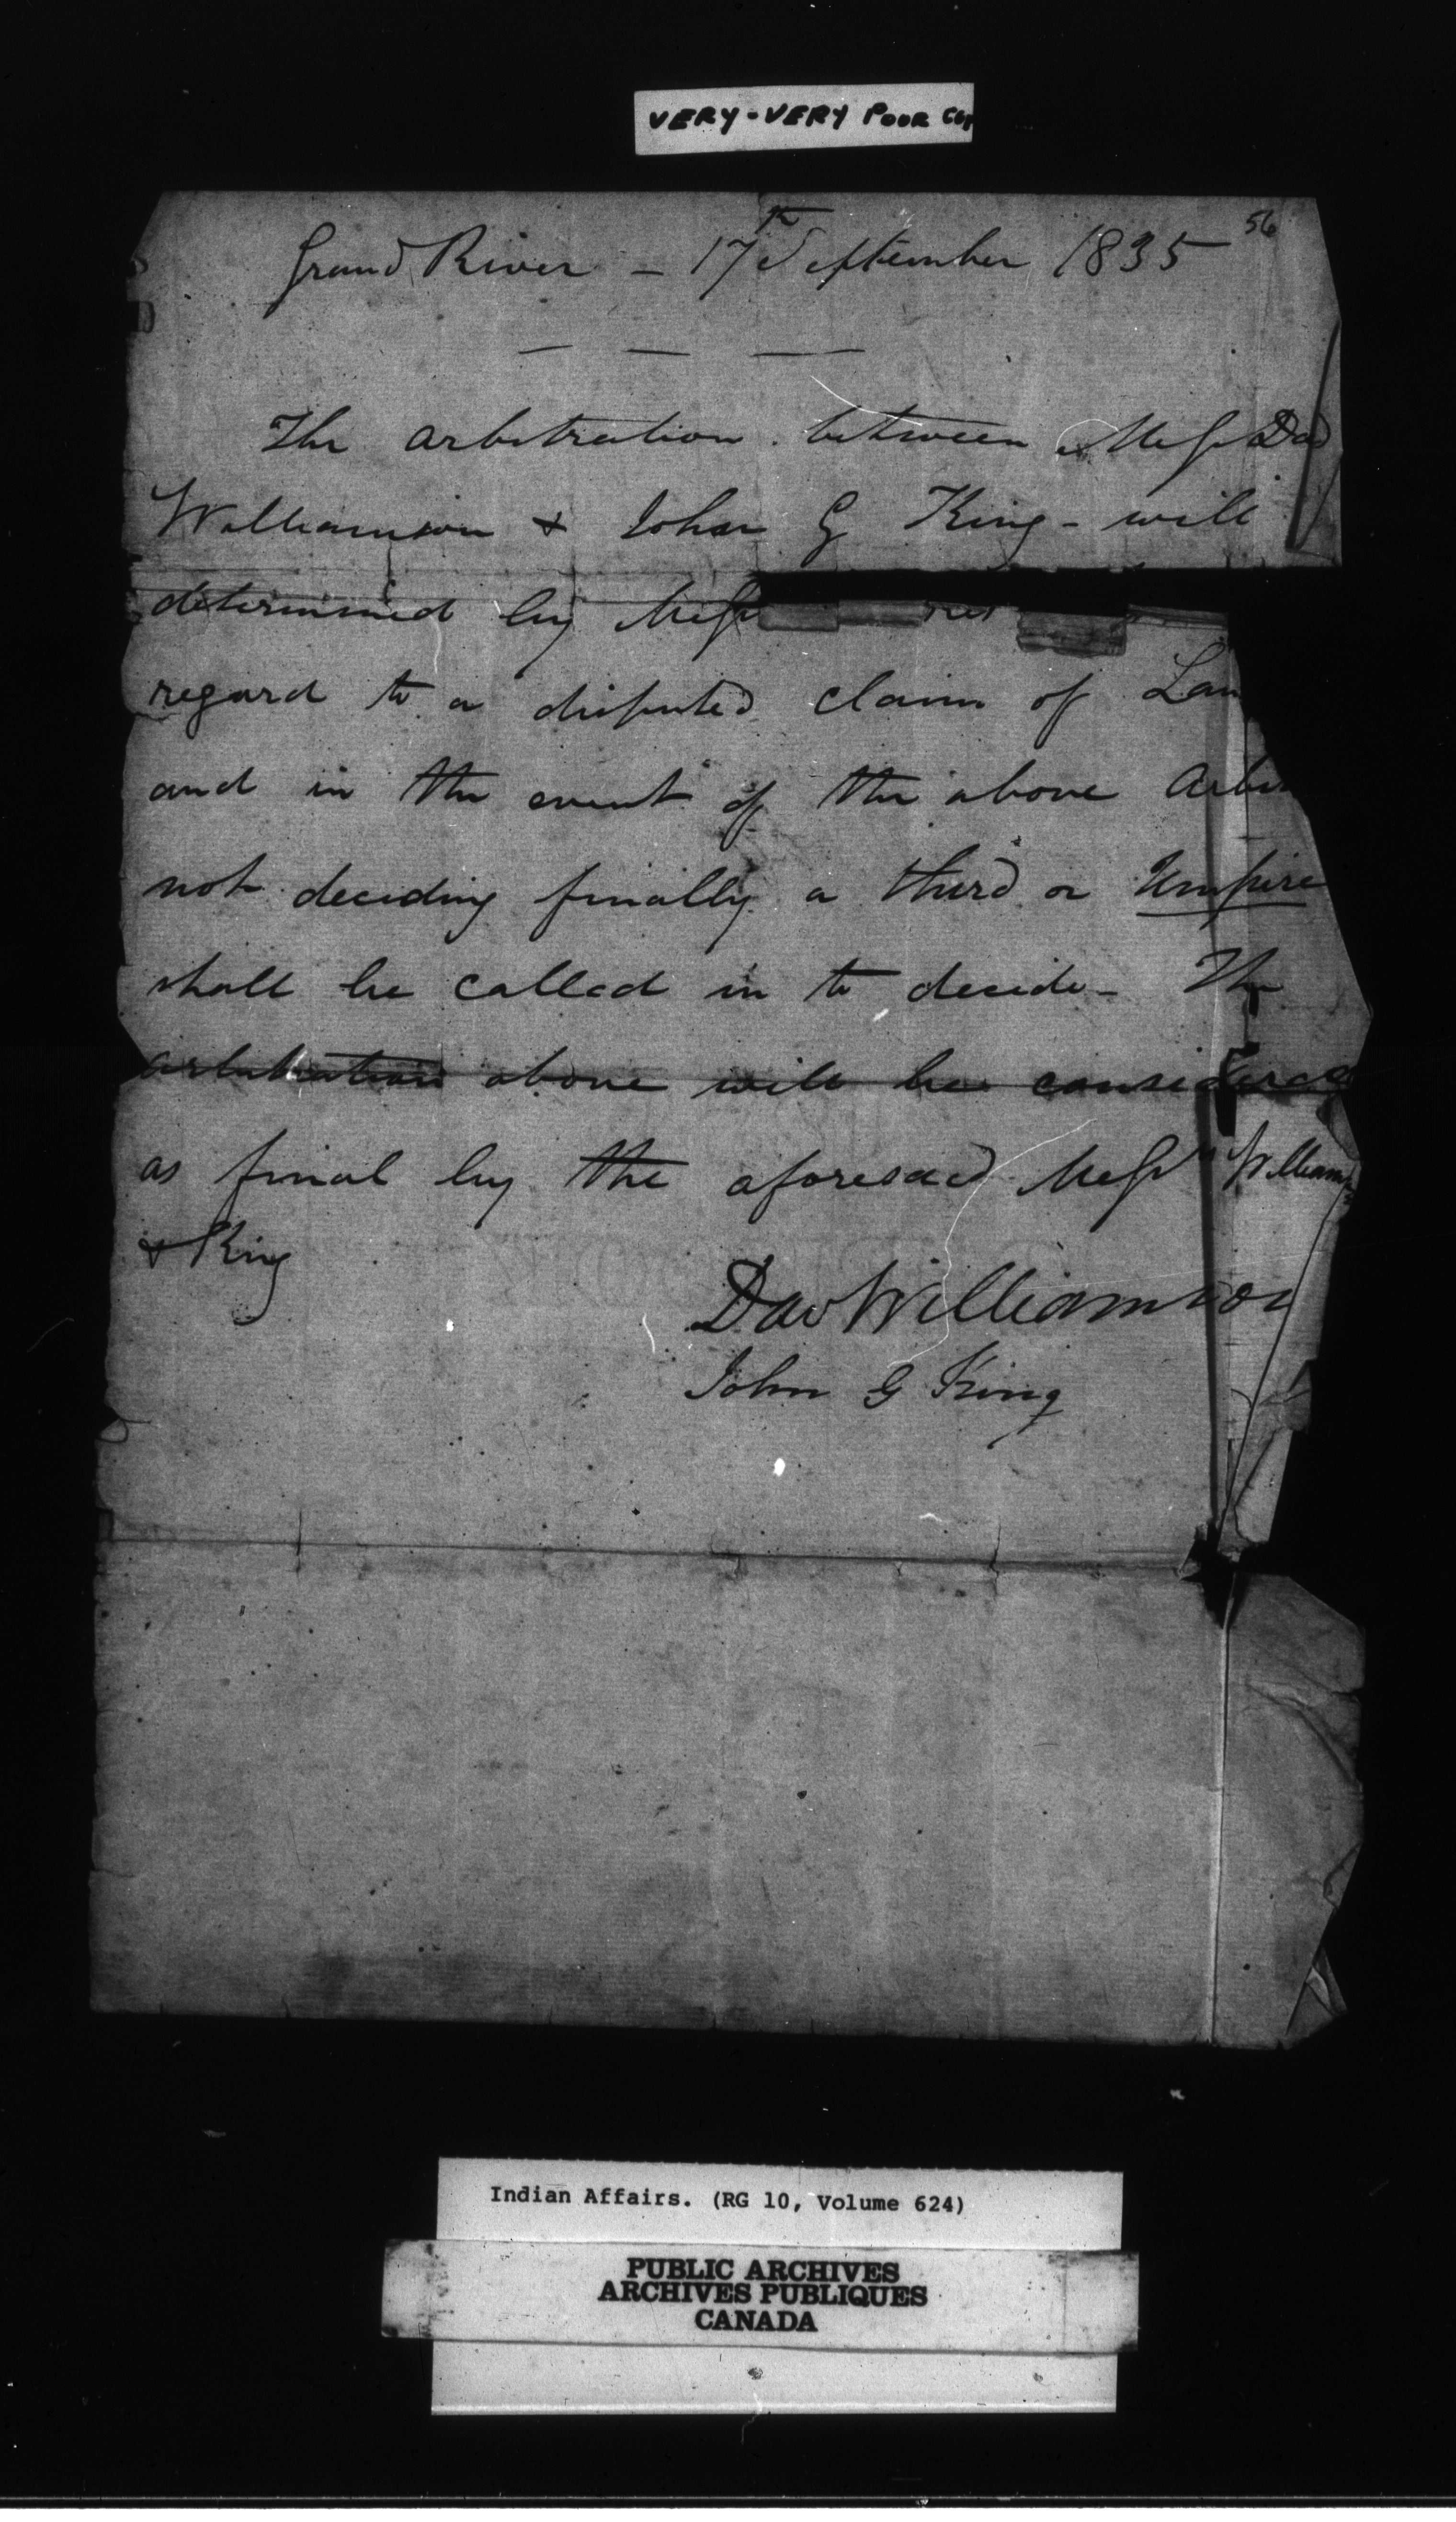 VERY-VERY POOR COP
56
Grand River - 17th September 1835
The arbitration between Messrs Dad
Williamson & John G King - will
determined by Messrs
regard to a disputed claim of Lan
and in the event of the above Arbit
not deciding finally a third or Umpire
shall be called in to decide - The
arbitration above will be considered
as final by the aforesaid Messrs Williams
& King
Dav Williamson
John G King
Indian Affairs. (RG 10, Volume 624)
PUBLIC ARCHIVES
ARCHIVES PUBLIQUES
CANADA